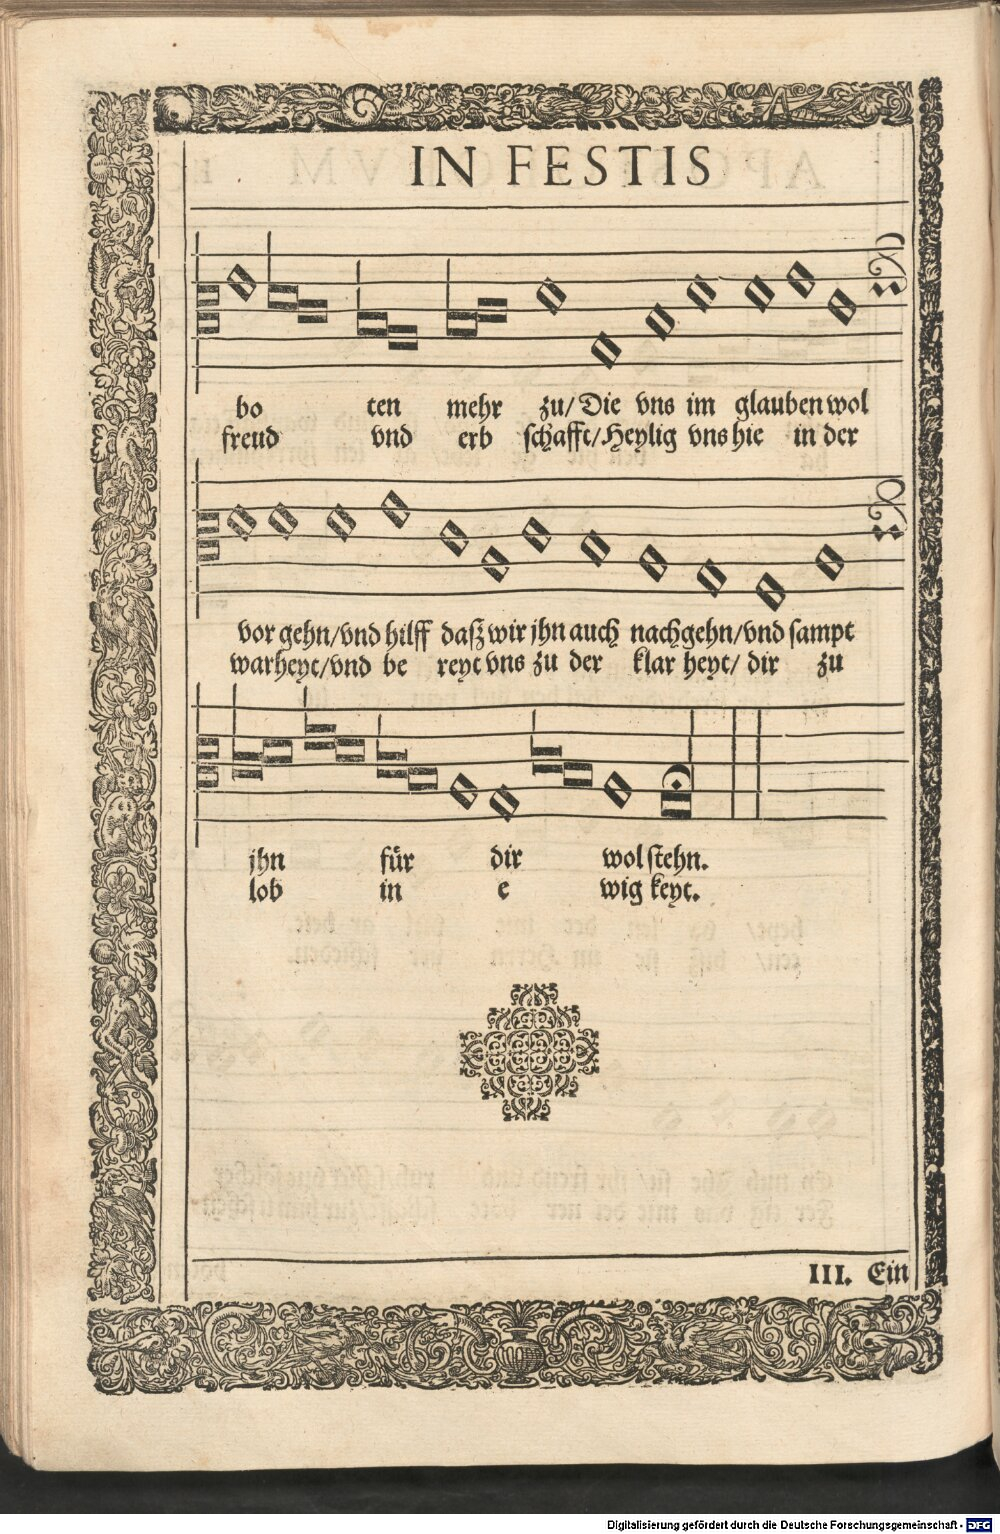 IN FESTIS
bo ten mehr zu/ Die vns im glauben wol
freud vnd erb schafft/ Heylig vns hie in der
vor gehn/ vnd hilff dasz wir jhn auch nachgehn/ vnd sampt
warheyt/ vnd be reyt vns zu der klar heyt/ dir zu
jhn für dir wol stehn.
lob in e wig keyt.
III. Ein
Digitalisierung gefördert durch die Deutsche Forschungsgemeinschaft - DFG